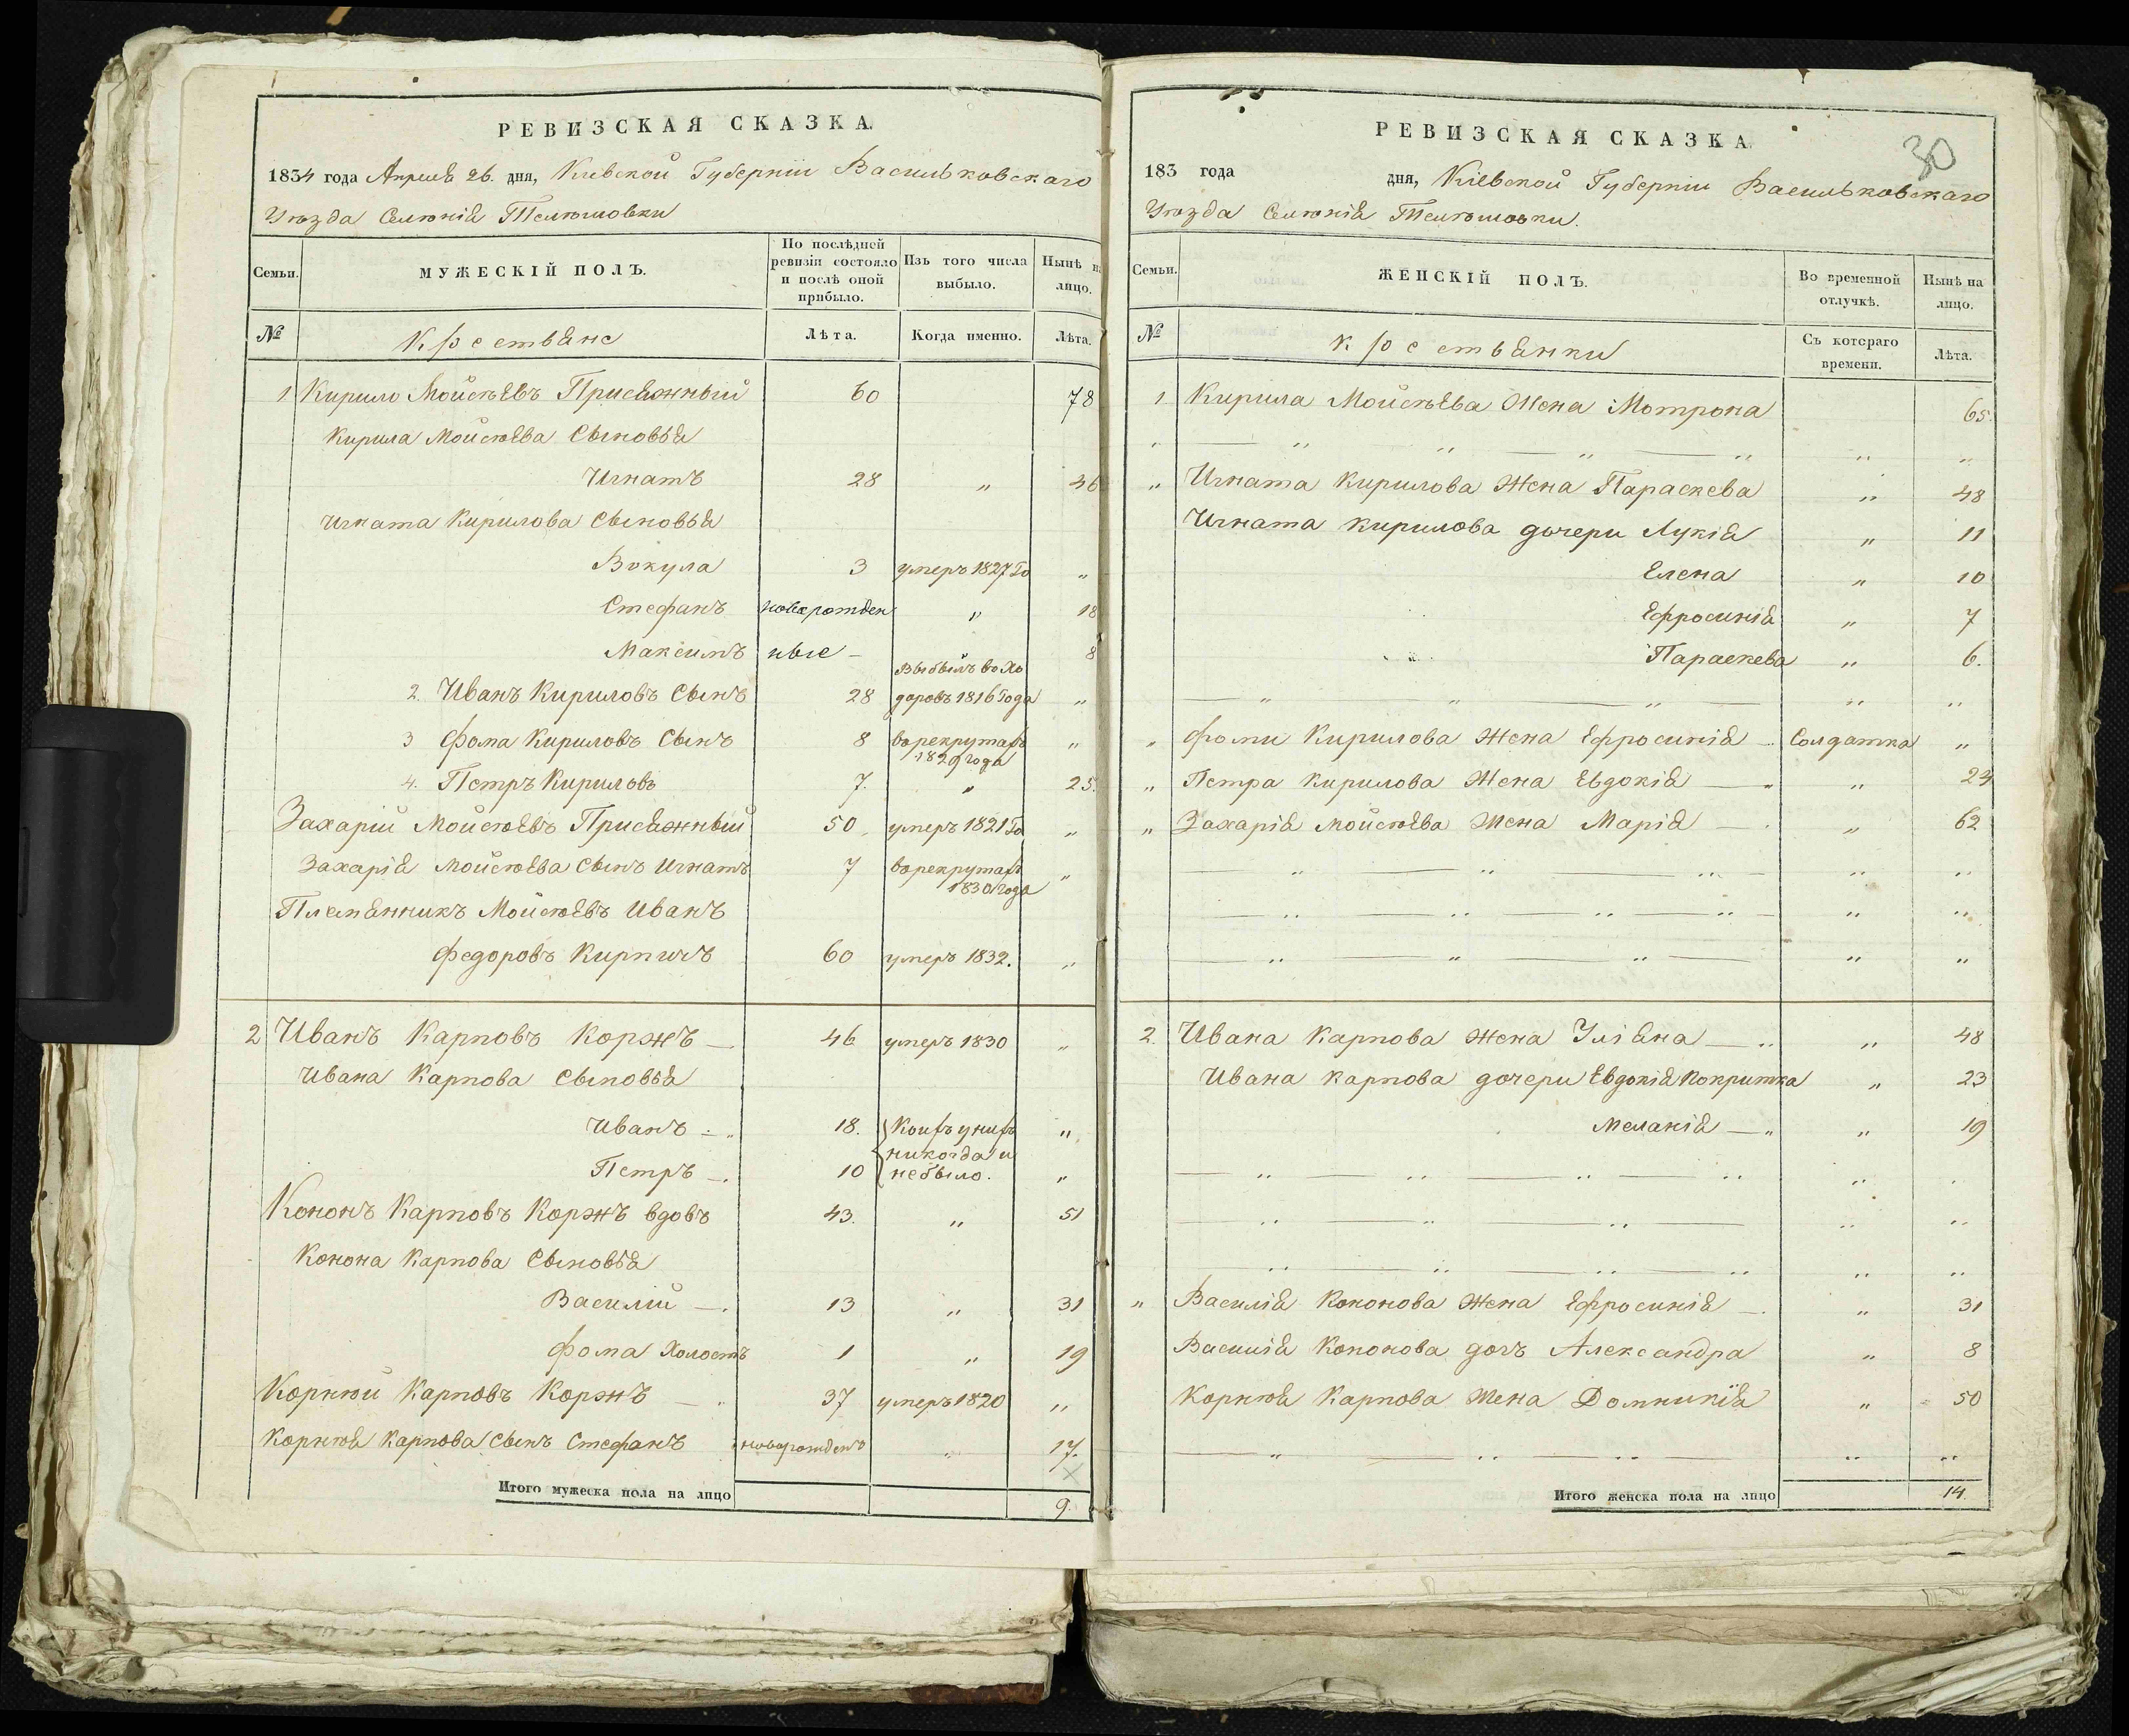 РЕВИЗСКАЯ СКАЗКА.
1834 года Апреля 26. дня, Киевской Губернии Васильковскаго
Уѣзда Селенія Телѣшовки
Семьи. МУЖЕСКІЙ ПОЛЪ. По послѣдней ревизіи состояло и послѣ оной прибыло. Изъ того числа выбыло. Нынѣ на лицо.
№ Крестьяне Лѣта. Когда именно. Лѣта.
1 Кирило Мойсѣевъ Присяжный 60 78
Кирила Мойсѣева Сыновья
Игнатъ 28 „ 46
Игната Кирилова Сыновья
Вокула 3 умеръ 1827 Го „
Стефанъ новорожден „ 18
Максимъ ные – 8
2. Иванъ Кириловъ Сынъ 28 Выбылъ во Хо доровъ 1816 Года „
3 Фома Кириловъ Сынъ 8 ворекрутахъ 1829 года „
4. Петръ Кириловъ 7. „ 25.
Захарій Мойсѣевъ Присяжный 50 умеръ 1821 Го „
Захарія Мойсѣева Сынъ Игнатъ 7 ворекрутахъ 1830 Года „
Племянникъ Мойсѣевъ Иванъ
Федоровъ Кирпичъ 60 умеръ 1832. „
2 Иванъ Карповъ Коржъ — 46 умеръ 1830 „
Ивана Карпова Сыновья
Иванъ 18. Коихъ унихъ „
никогда и
Петръ 10 небыло. „
Кононъ Карповъ Коржъ вдовъ 43. „ 51
Конона Карпова Сыновья
Василій —. 13 „ 31
Фома Холостъ 1 „ 19
Корнѣй Карповъ Коржъ 37 умеръ 1820 „
Корнѣя Карпова Сынъ Стефанъ новорожденъ „ 17.
Итого мужеска пола на лицо 9.
30
РЕВИЗСКАЯ СКАЗКА.
183 года дня, Кіевской Губерніи Васильковскаго
Уѣзда Селенія Телѣшовки.
Семьи. ЖЕНСКІЙ ПОЛЪ. Во временной отлучкѣ. Нынѣ на лицо.
№ Крестьянки Съ котораго времени. Лѣта.
1 Кирила Мойсѣева Жена Мотрона 65.
„ Игната Кирилова Жена Параскева „ 48
Игната Кирилова дочери Лукія „ 11
Елена „ 10
Ефросинія „ 7
Параскева „ 6.
„ Фомы Кирилова Жена Ефросинія Солдатка „
„ Петра Кирилова Жена Евдокія „ 24
„ Захарія Мойсѣева Жена Марія „ 62
2. Ивана Карпова Жена Уліяна „ 48
Ивана Карпова дочери Евдокія Покритка „ 23
Меланія „ 19
„ Василія Кононова Жена Ефросинія „ 31
Василія Кононова дочь Александра „ 8
Корнѣя Карпова Жена Домникія „ 50
Итого женска пола на лицо 14